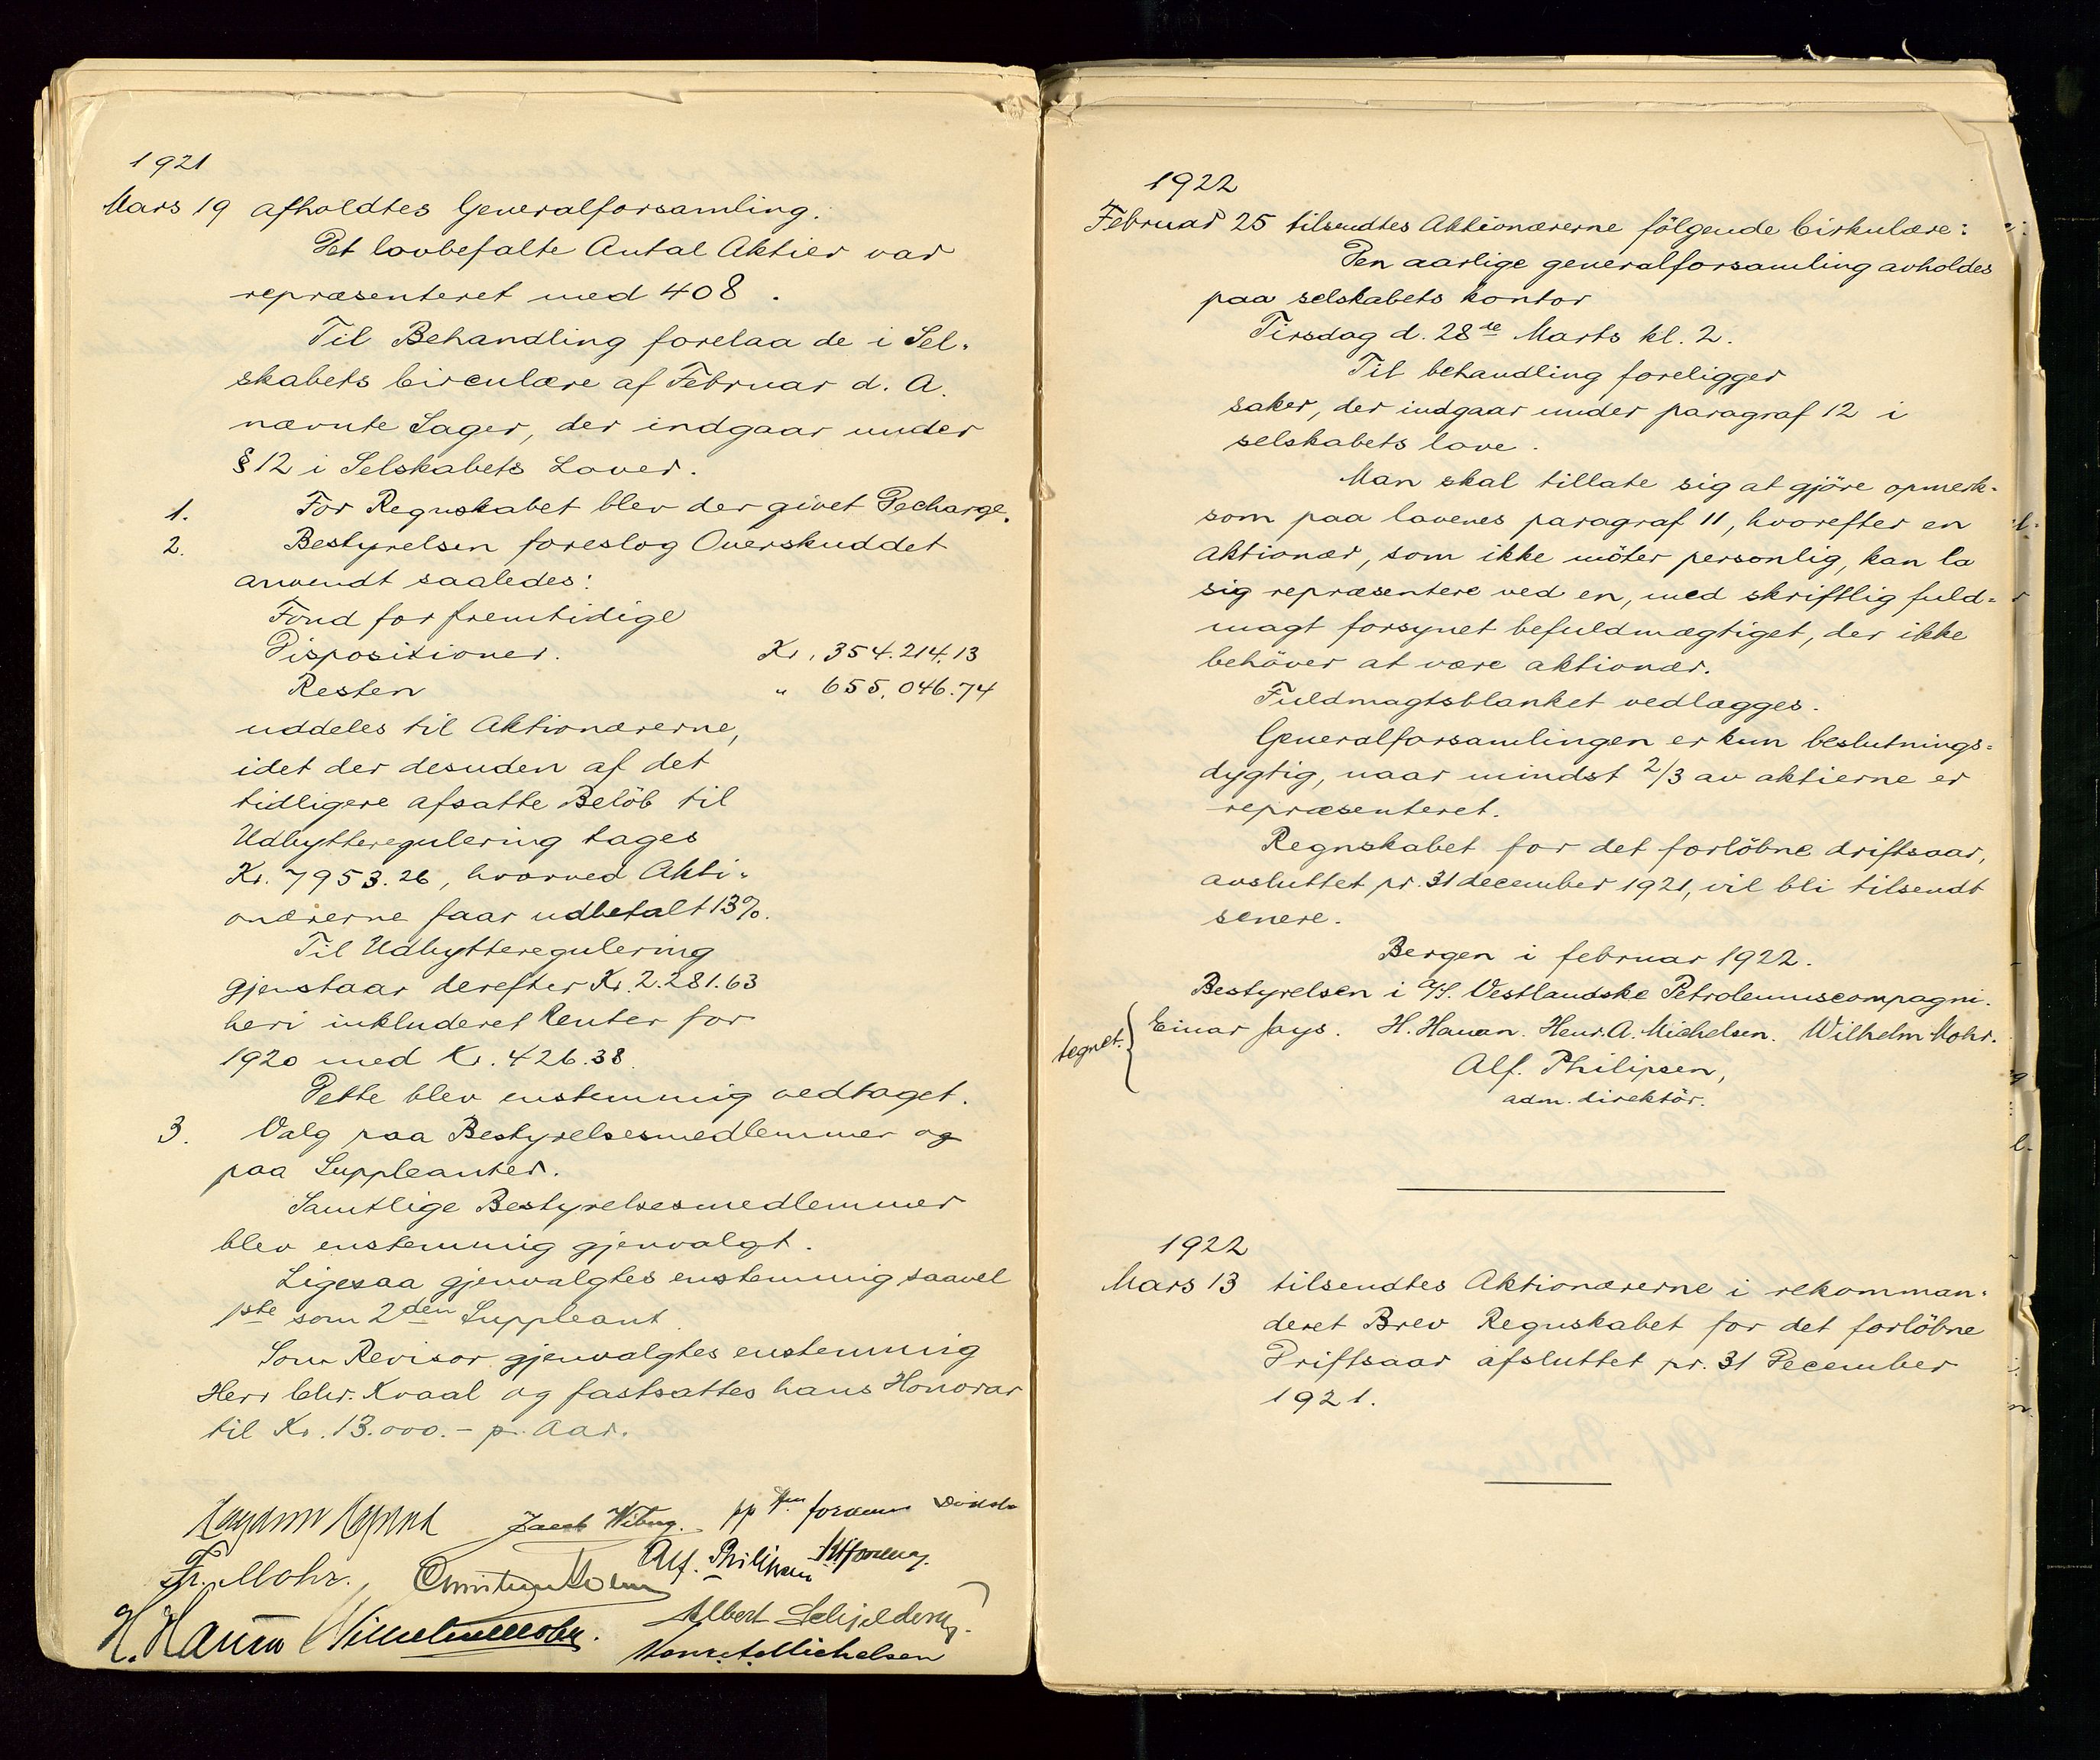 1921
Mars 19 afholdtes Generalforsamling.
Det lovbefalte Antal Aktier var
repræsenteret med 408.
Til Behandling forelaa de i Sel-
skabets Circulære af Februar d. A.
nævnte Sager, der indgaar under
§ 12 i Selskabets Lover.
1. For Regnskabet blev der givet Decharge.
2. Bestyrelsen foreslog Overskuddet
anvendt saaledes:
Fond for fremtidige
Dispositioner. Kr. 354.214.13
Resten " 655.046.74
uddeles til Aktionærerne,
idet der desuden af det
tidligere afsatte Belöb til
Udbytteregulering tages
Kr. 7953.26, hvorved Akti-
onærerne faar udbetalt 13%.
Til Udbytteregulering
gjenstaar derefter Kr. 2.281.63
heri inkluderet Renter for
1920 med Kr. 426.38.
Dette blev enstemmig vedtaget.
3. Valg paa Bestyrelsesmedlemmer og
paa Suppleanter.
Samtlige Bestyrelsesmedlemmer
blev enstemmig gjenvalgt.
Ligesaa gjenvalgtes enstemmig saavel
1ste som 2den Suppleant
Som Revisor gjenvalgtes enstemmig
Herr Chr. Kvaal og fastsattes hans Honorar
til Kr. 13.000.- pr. Aar.
Jacob Wiberg. pp
Fr. Mohr. Alf. Philipsen
H. Hauan Wilhelm Mohr. Albert Schjelderup.
Henr. A. Michelsen
1922
Februar 25 tilsendtes Aktionærerne fölgende Cirkulære:
Den aarlige generalforsamling avholdes
paa selskabets kontor
Tirsdag d. 28de Marts kl. 2.
Til behandling foreligger
saker, der indgaar under paragraf 12 i
selskabets love.
Man skal tillate sig at gjöre opmerk-
som paa lovenes paragraf 11, hvorefter en
aktionær, som ikke möter personlig, kan la
sig repræsentere ved en, med skriftlig fuld=
magt forsynet befuldmægtiget, der ikke
behöver at være aktionær.
Fuldmagtsblanket vedlægges.
Generalforsamlingen er kun beslutnings=
dygtig, naar mindst 2/3 av aktierne er
repræsenteret.
Regnskabet for det forlöbne driftsaar,
avsluttet pr. 31 december 1921, vil bli tilsendt
senere.
Bergen i februar 1922.
Bestyrelsen i A/S. Vestlandske Petroleumscompagni.
tegnet. Einar Jays. H. Hauan. Henr. A. Michelsen. Wilhelm Mohr.
Alf. Philipsen,
adm. direktör.
1922
Mars 13 tilsendtes Aktionærerne i rekomman-
deret Brev Regnskabet for det forlöbne
Driftsaar afsluttet pr. 31 December
1921.